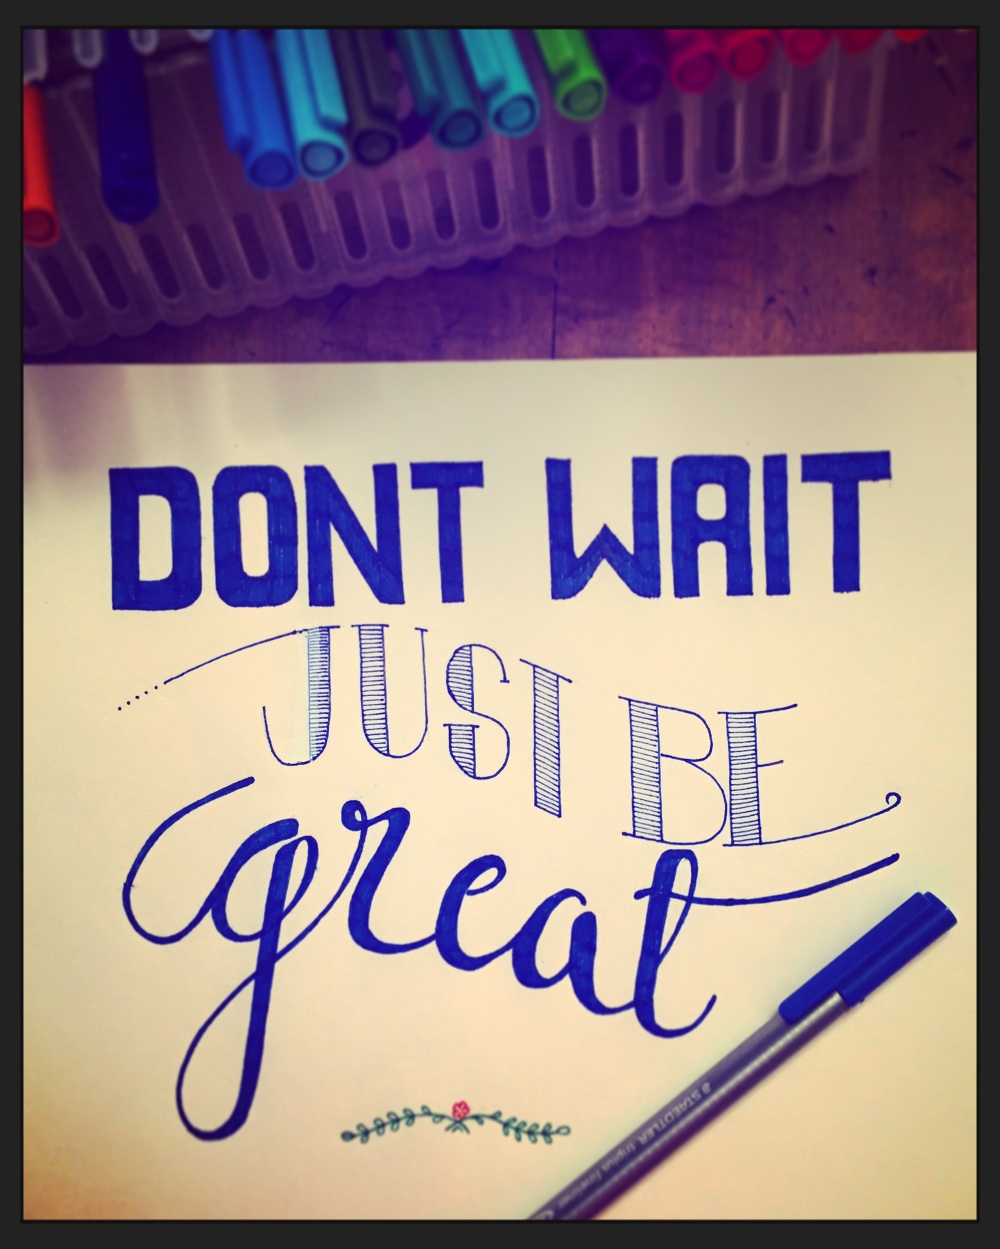 DONT WAIT
JUST BE
great
STAEDTLER triplus fineliner